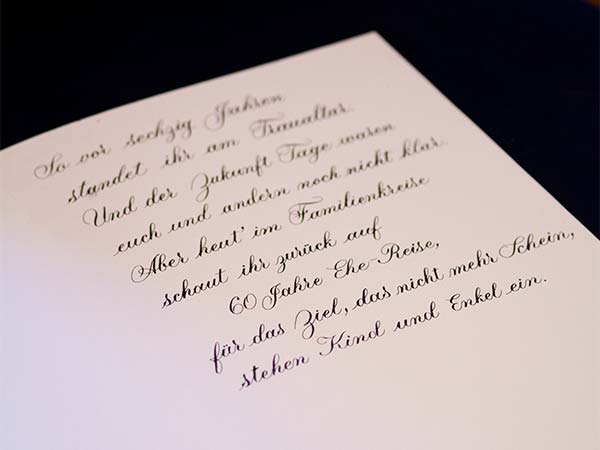 So vor sechzig Jahren
standet ihr am Traualtar.
Und der Zukunft Tage waren
euch und andern noch nicht klar.
Aber heut' im Familienkreise
schaut ihr zurück auf
60 Jahre Ehe-Reise,
für das Ziel, das nicht mehr Schein,
stehen Kind und Enkel ein.